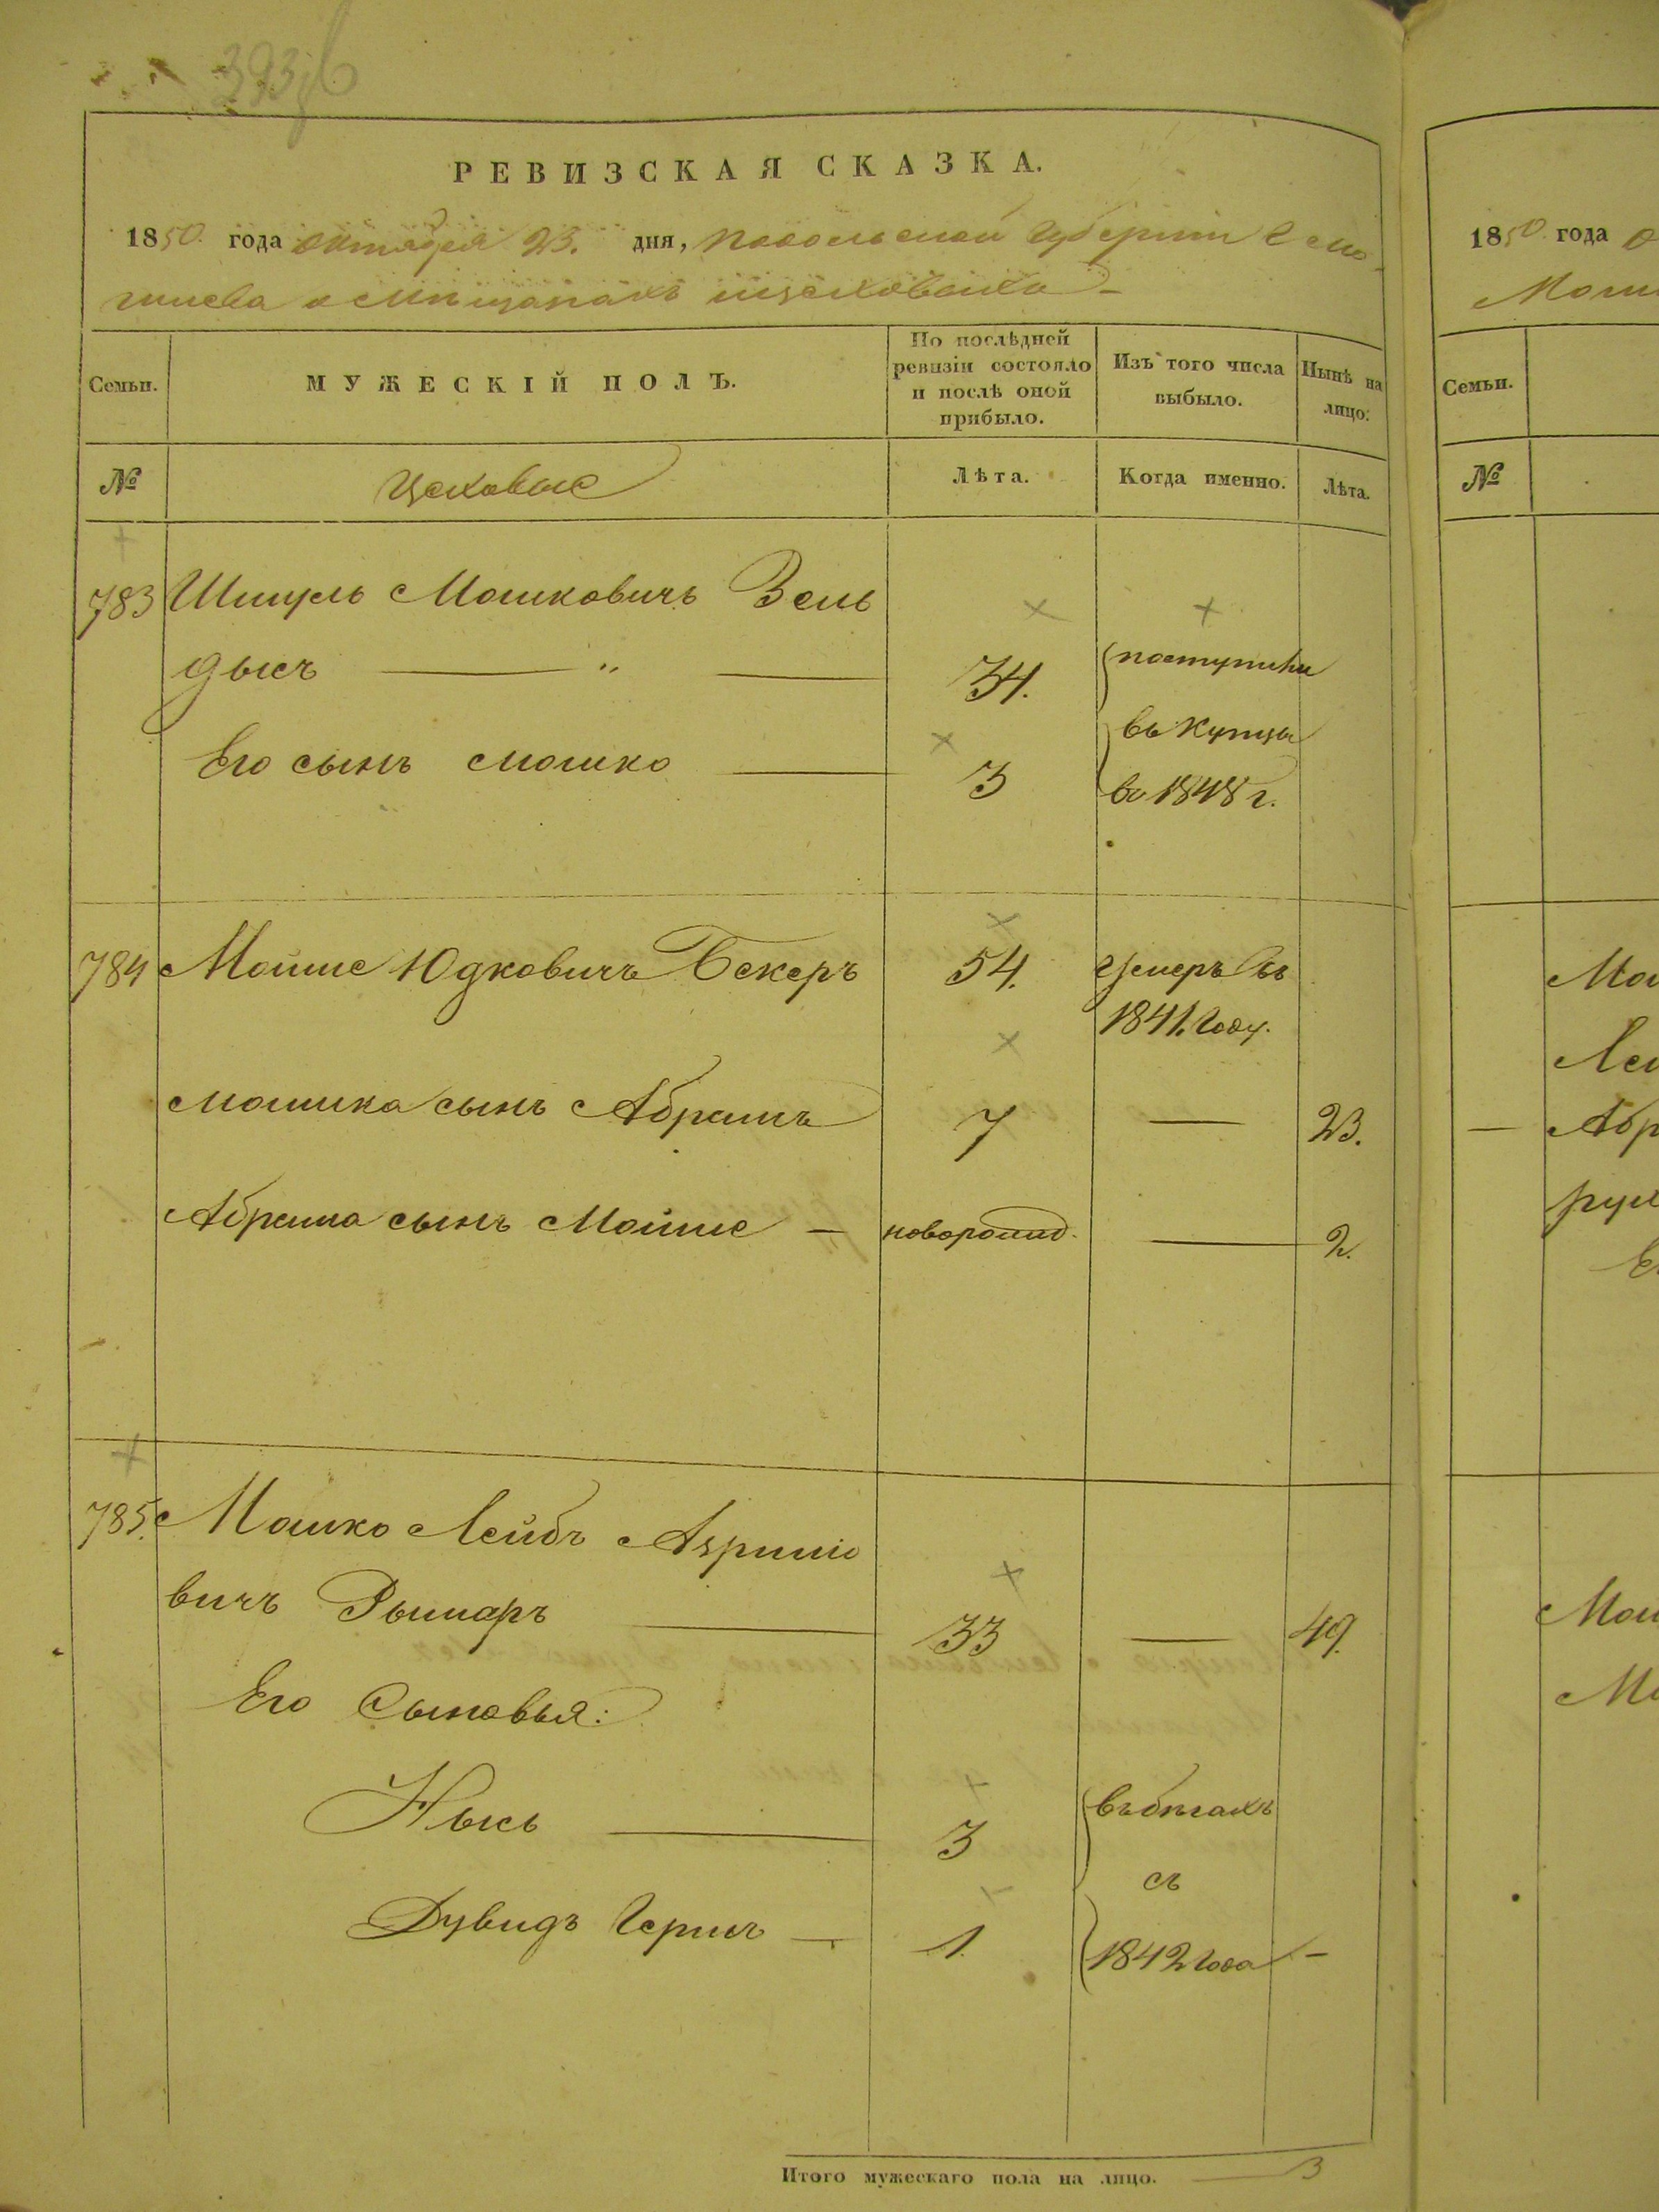 393
РЕВИЗСКАЯ СКАЗКА.
1850. года октября 23. дня, Подольской Губернiи
о мѣщанахъ
Семьи.
МУЖЕСКІЙ ПОЛЪ.
По послѣдней
ревизіи состояло
и послѣ оной
прибыло.
Изъ того числа
выбыло.
Нынѣ на
лицо.
№
Цеховые
Лѣта.
Когда именно.
Лѣта.
783 Шмуль Мошковичъ Зень
дысъ — „ — 34. поступили
Его сынъ Мошко — 3 въ Купцы
въ 1848 г.
784 Мойше Юдковичъ Бекеръ 54. Умеръ въ
1841. Году.
Мошика сынъ Абрамъ 7 — 23.
Абрама сынъ Мойше — новорожд. — 2.
785. Мошко Лейбъ
вичъ Рымаръ — 33 — 49.
Его Сыновья:
Нысь — 3 въ бѣгахъ
съ
Дувидъ Гершъ — 1. 1842 Года —
Итого мужескаго пола на лицо. — 3
1850 года
Семьи.
№